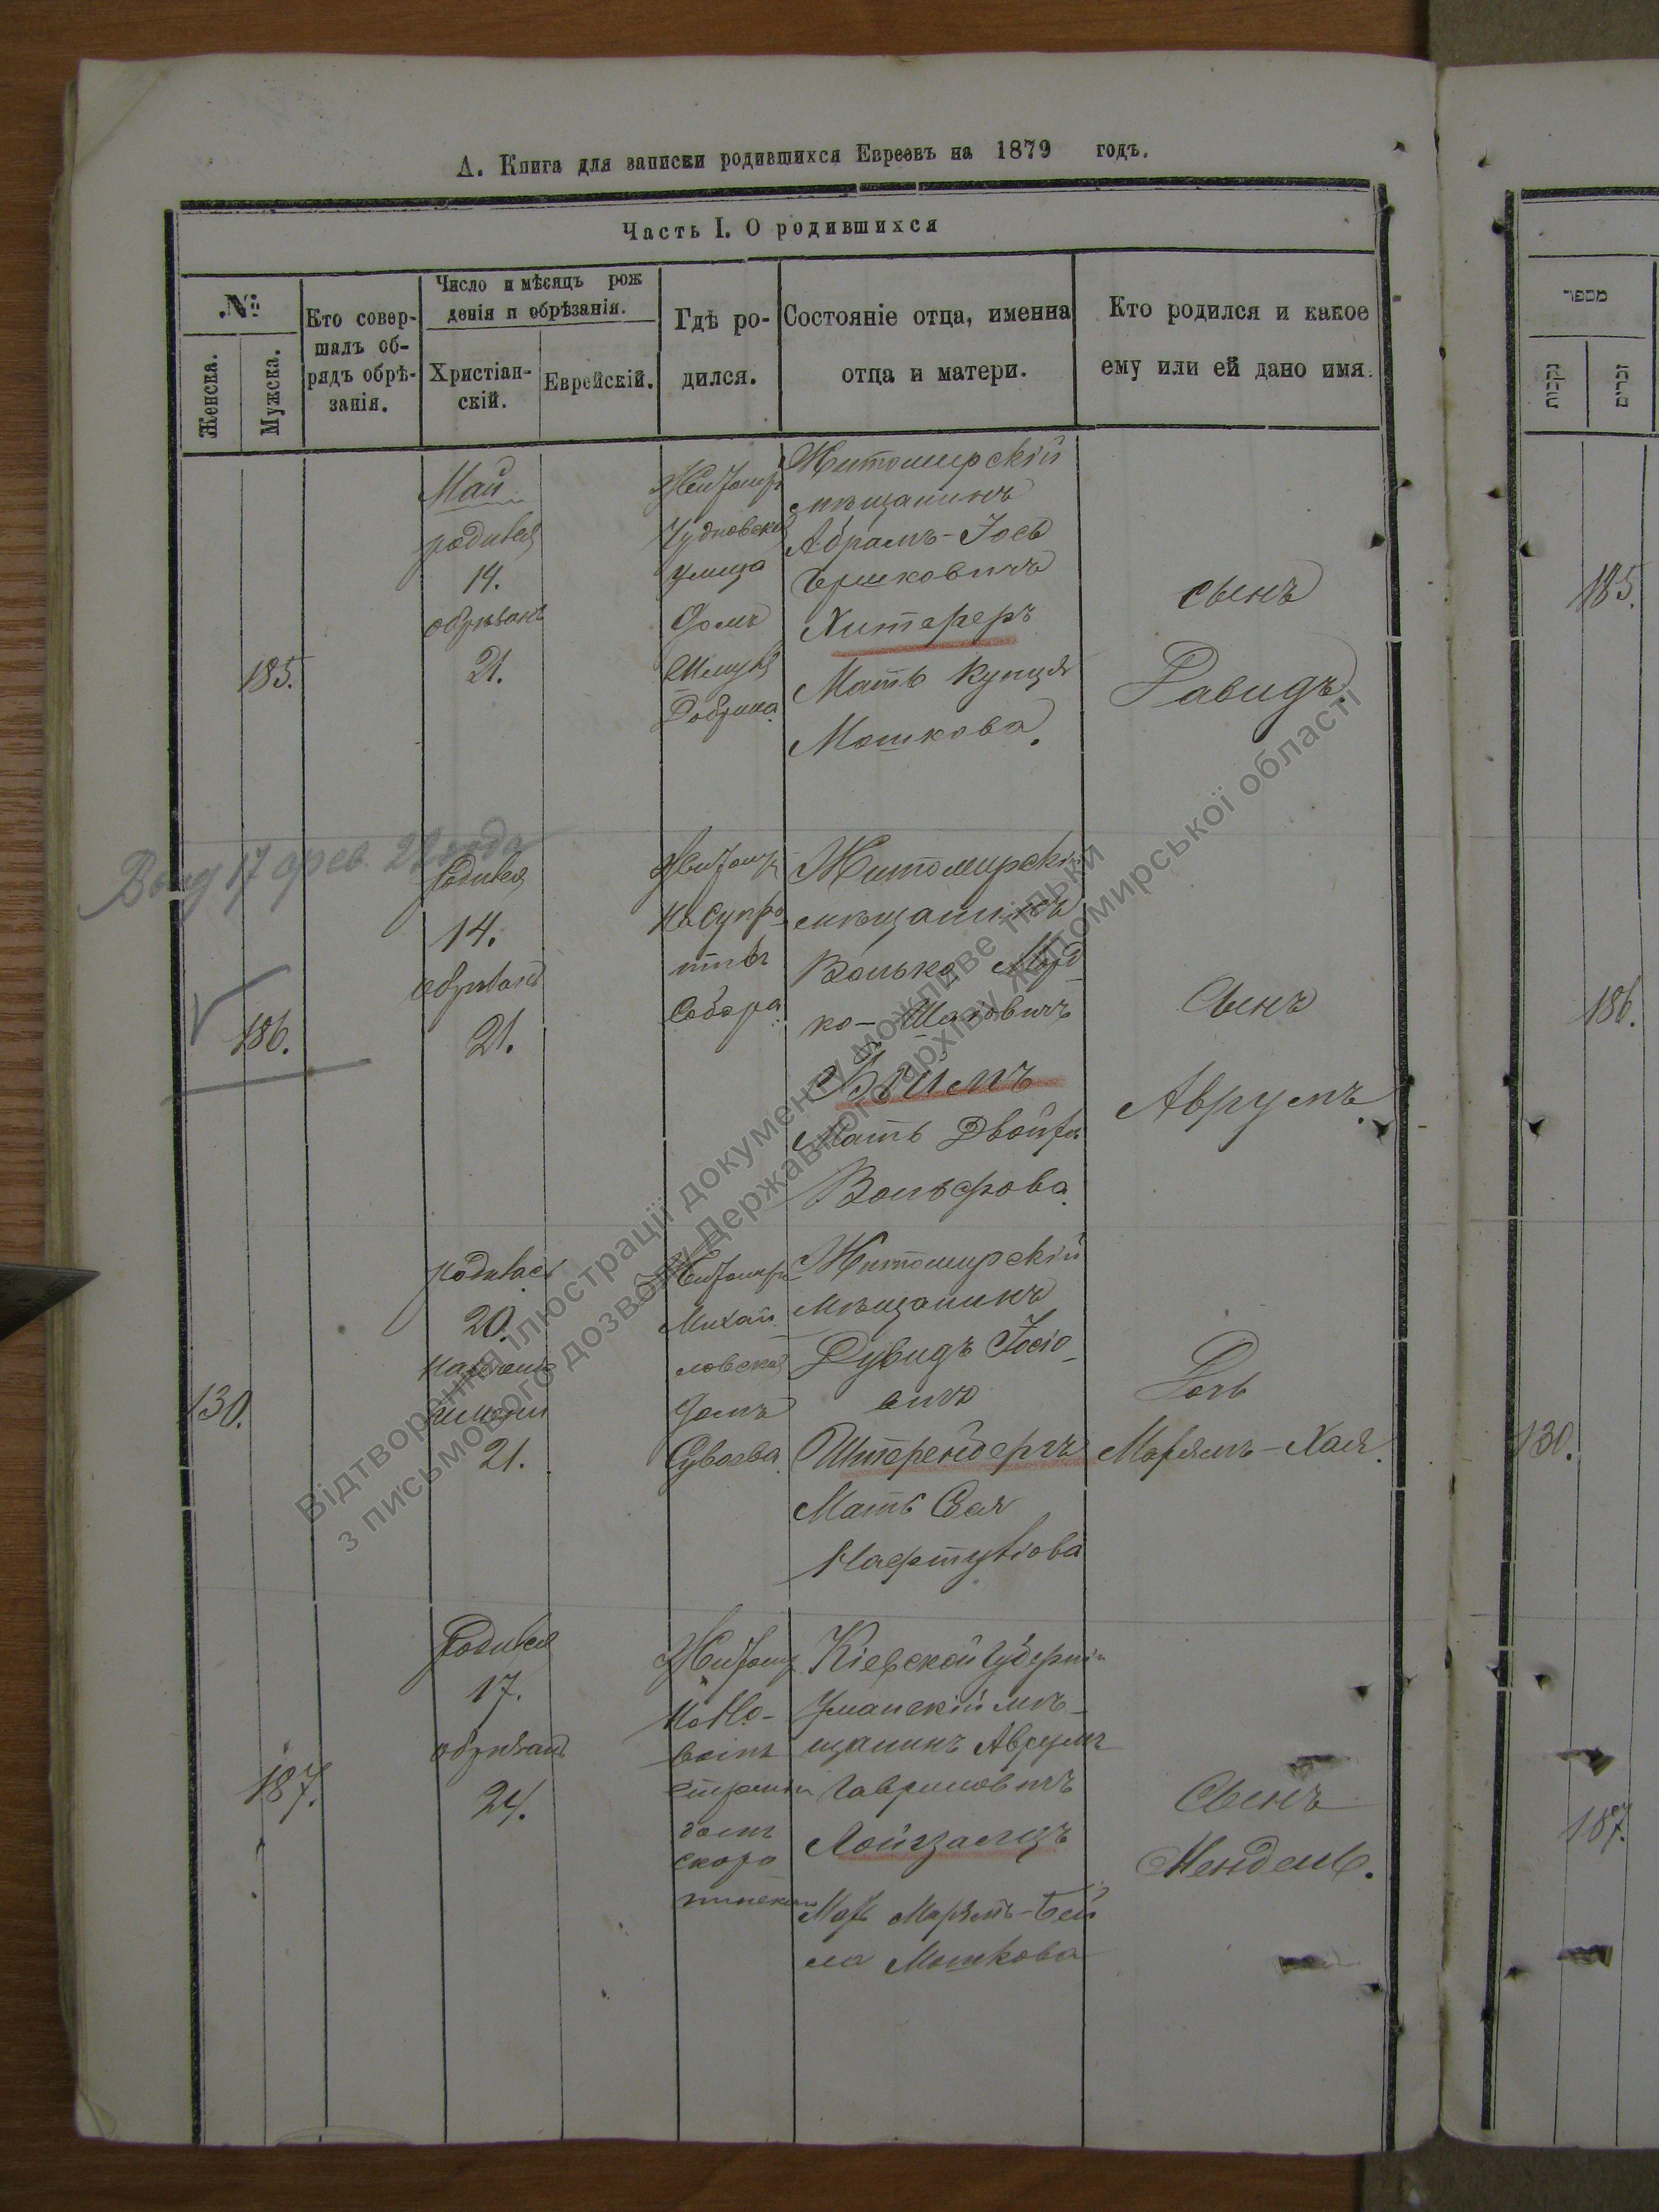 А. Книга для записки родившихся Евреевъ на 1879 годъ.
Часть I. О родившихся
№
Женска.
Мужска.
Кто совер-
шалъ об-
рядъ обрѣ-
занія.
Число и мѣсяцъ рож
денія и обрѣзанія.
Христіан-
скій.
Еврейскій.
Гдѣ ро-
дился.
Состояніе отца, именна
отца и матери.
Кто родился и какое
ему или ей дано имя.
185.
Май
родился
14.
обрѣзанъ
21.
Житомиръ
Чудновская
улица
домъ
Добрина.
Житомирскій
мѣщанинъ
Абрамъ-Іось
Гершковичъ
Хитереръ
Мать Купця
Мошкова.
сынъ
Давидъ.
186.
родился
14.
обрѣзанъ
21.
Житомиръ
На супро-
тивъ
Собора
Житомирскій
мѣщанинъ
Волько Мор
ко-
Мать Двойра
Вольфова.
Сынъ
Аврумъ.
130.
родилась
20.
наречено
имени
21.
Житомиръ
Михай
ловская
домъ
Житомирскій
мѣщанинъ
Дувидъ Іосіо-
вичъ
Мать
Дочь
Марьямъ-Хая.
187.
родился
17.
обрѣзанъ
24.
Житомиръ
на Но-
воимъ
Кіевской Губерніи
Уманскій мѣ-
щанинъ Аврумъ
Гавриловичъ
Лойцманъ
Мать Марьямъ-Бей
ла Мошкова
Сынъ
Мендель.
מספר
נקבות
זכרים
185.
186.
130.
187.
Відтворення ілюстрації документу можливе тільки
з письмового дозволу Державного архіву Житомирської області